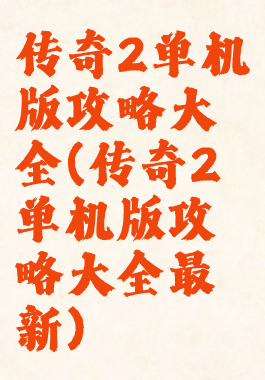 传奇2单机
版攻略大
全(传奇2
单机版攻
略大全最
新)